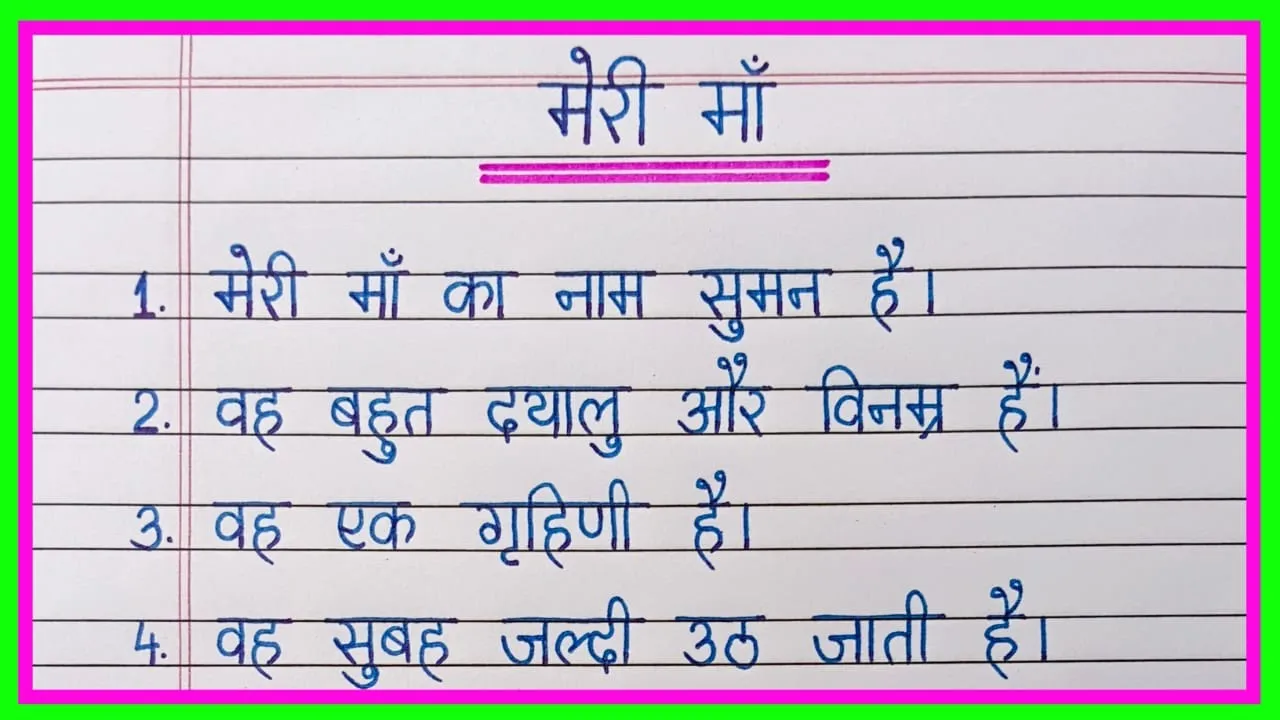 मेरी माँ
1. मेरी माँ का नाम सुमन है।
2. वह बहुत दयालु और विनम्र हैं।
3. वह एक गृहिणी है।
4. वह सुबह जल्दी उठ जाती है।